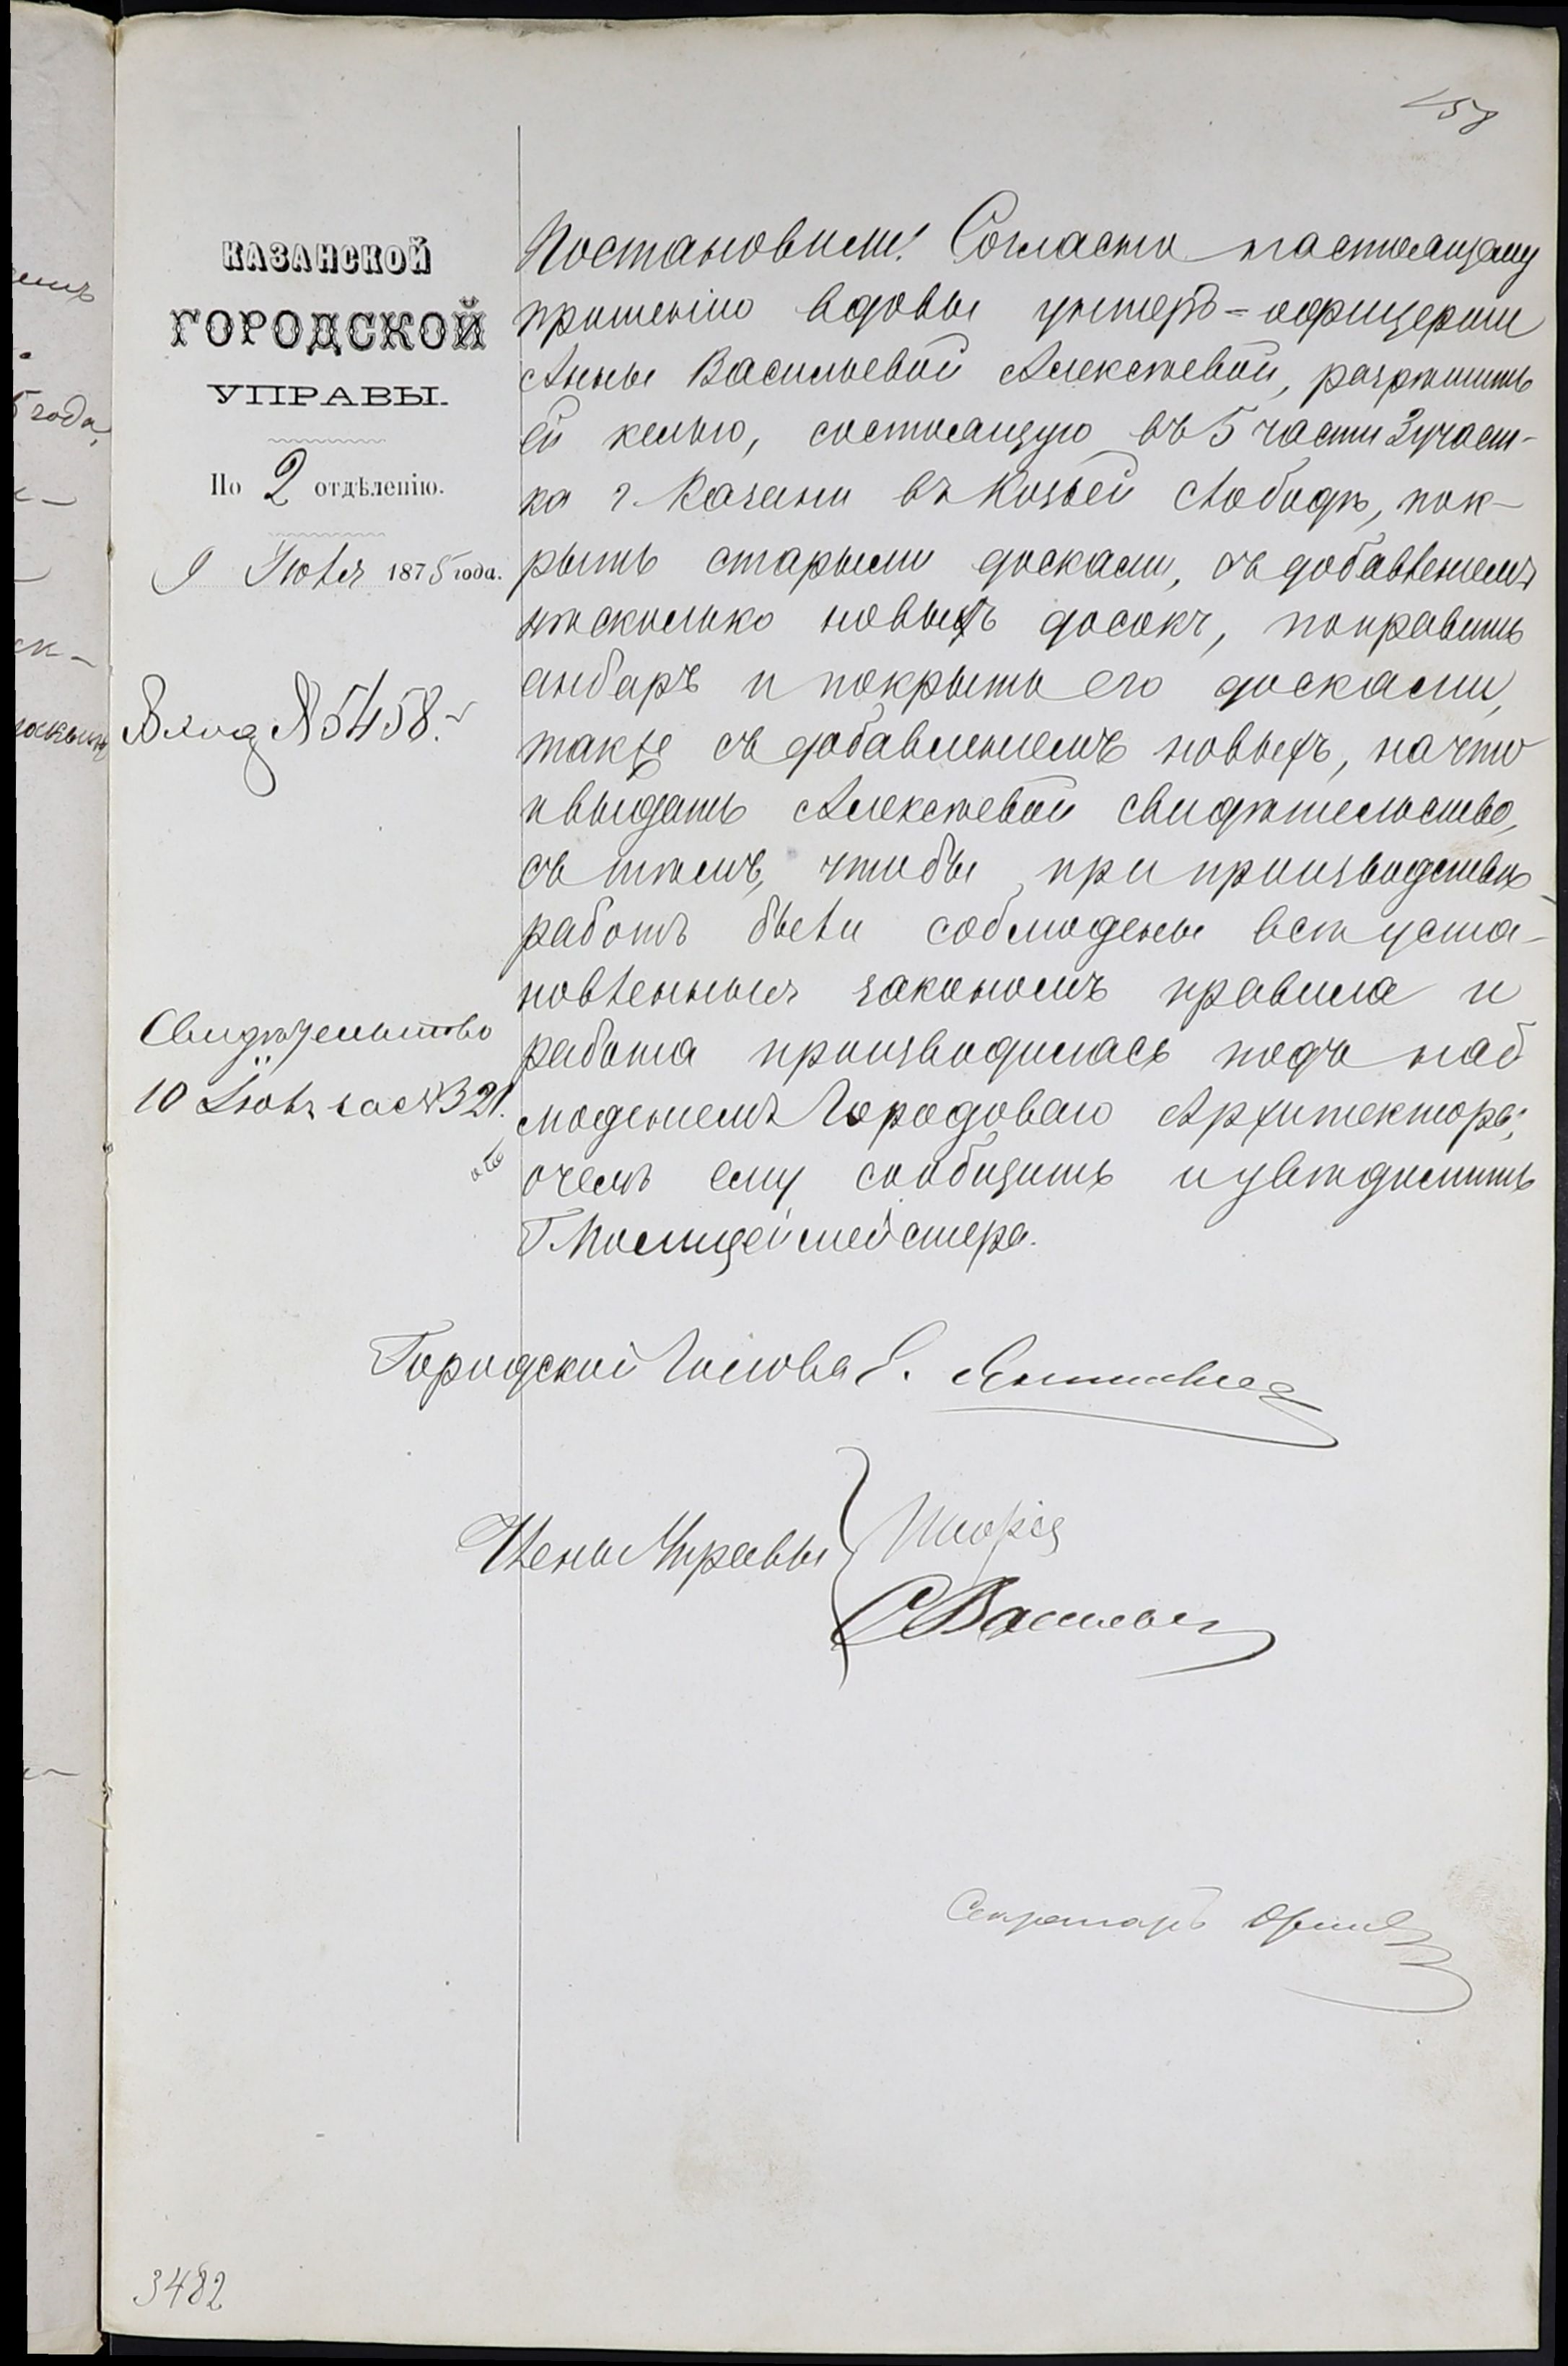 158
КАЗАНСКОЙ
ГОРОДСКОЙ
УПРАВЫ.
По 2 отдѣленію.
9 Іюля 1875 года.
Вход № 5458.
Свидѣтельство
10 Іюля за № 321.
Постановили: Согласно настоящему
прошенію вдовы унтеръ-офицерши
Анны Васильевой Алексѣевой, разрѣшить
ей келью, состоящую въ 5 части 3 участ-
ка г. Казани въ Козьей слободѣ, пок-
рыть старыми досками, съ добавленіемъ
нѣсколько новыхъ досокъ, поправить
анбаръ и покрыть его досками,
также съ добавленіемъ новыхъ, на что
и выдать Алексѣевой свидѣтельство,
съ тѣмъ, чтобы при производствѣ
работъ были соблюдены всѣ уста-
новленныя закономъ правила и
работа производилась подъ наб
люденіемъ Городоваго Архитектора;
о чемъ ему сообщить и увѣдомить
Г. Полицеймейстера.
Городской Голова Е.
Члены Управы
С Васильев
Секретарь
3482
года,